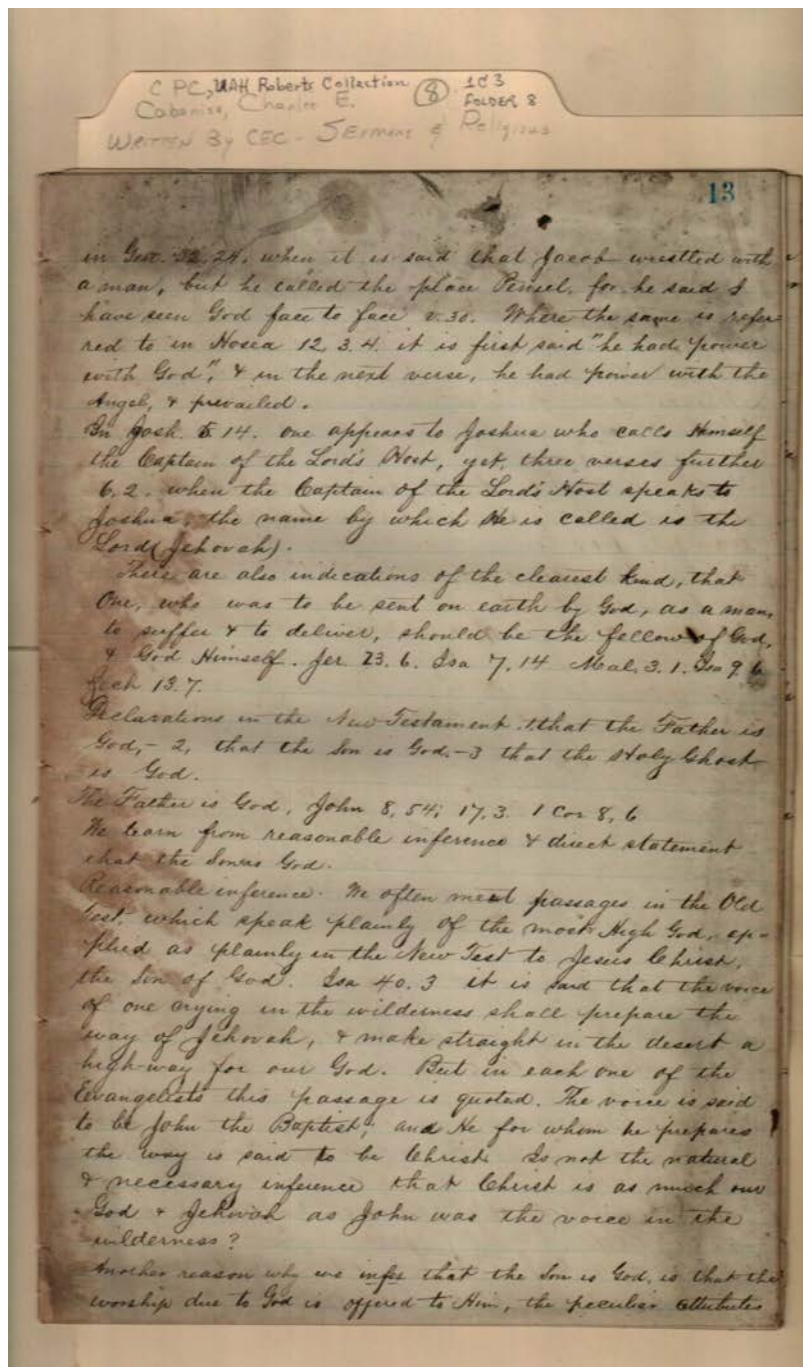 C PC, UAH Roberts Collection 8 1 of 3
Cabaniss, Charles E. FOLDER 8
WRITTEN By CEC - SERMONS & Religious
13
in Gen. 32, 24. when it is said that Jacob wrestled with
a man, but he called the place Peniel, for he said I
have seen God face to face v. 30. Where the same is refer
red to in Hosea 12, 3. 4. it is first said "he had power
with God", & in the next verse, he had power with the
Angel, & prevailed.
In Josh. 5 14. one appears to Joshua who calls Himself
the Captain of the Lord's Host, yet, three verses further
6, 2. when the Captain of the Lord's Host speaks to
Joshua, the name by which He is called is the
Lord (Jehovah).
There are also indications of the clearest kind, that
One, who was to be sent on earth by God, as a man,
to suffer & to deliver, should be the fellow of God,
& God Himself. Jer. 23. 6. Isa 7. 14 Mal. 3. 1. Isa 9. 6
Zech 13. 7.
Declarations in the New Testament. 1. that the Father is
God, - 2, that the Son is God. - 3 that the Holy Ghost
is God.
The Father is God, John 8, 54; 17, 3. 1 Cor 8, 6
We learn from reasonable inference & direct statement
that the Son is God.
Reasonable inference. We often meet passages in the Old
Test. which speak plainly of the most High God, ap-
plied as plainly in the New Test to Jesus Christ,
the Son of God. Isa 40. 3 it is said that the voice
of one crying in the wilderness shall prepare the
way of Jehovah, & make straight in the desert a
high-way for our God. But in each one of the
Evangelists this passage is quoted. The voice is said
to be John the Baptist, and He for whom he prepares
the way is said to be Christ. Is not the natural
& necessary inference that Christ is as much our
God & Jehovah as John was the voice in the
wilderness?
Another reason why we infer that the Son is God, is that the
worship due to God is offered to Him, the peculiar attributes